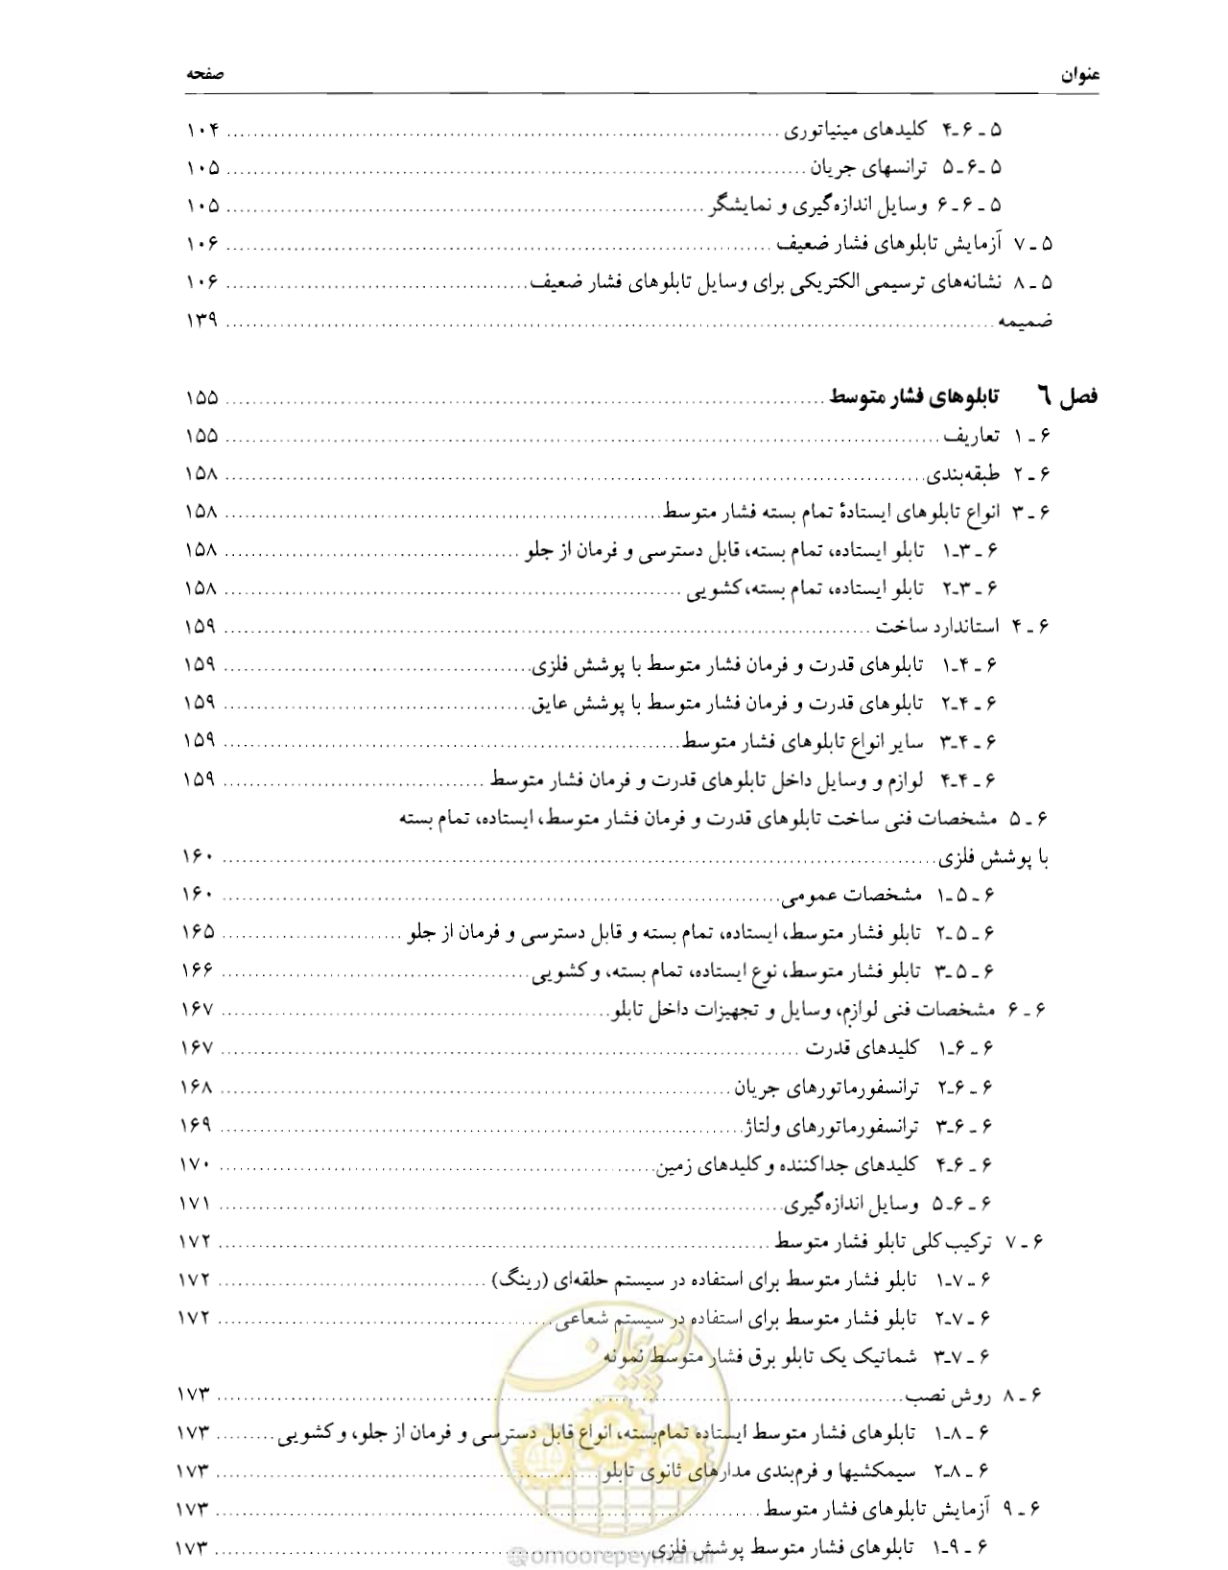 عنوان صفحه
۵ ـ ۶ ـ ۴ کلیدهای مینیاتوری ۱۰۴
۵ ـ ۶ ـ ۵ ترانسهای جریان ۱۰۵
۵ ـ ۶ ـ ۶ وسایل اندازه‌گیری و نمایشگر ۱۰۵
۵ ـ ۷ آزمایش تابلوهای فشار ضعیف ۱۰۶
۵ ـ ۸ نشانه‌های ترسیمی الکتریکی برای وسایل تابلوهای فشار ضعیف ۱۰۶
ضمیمه ۱۳۹
فصل ٦ تابلوهای فشار متوسط ۱۵۵
۶ ـ ۱ تعاریف ۱۵۵
۶ ـ ۲ طبقه‌بندی ۱۵۸
۶ ـ ۳ انواع تابلوهای ایستادهٔ تمام بسته فشار متوسط ۱۵۸
۶ ـ ۳ ـ ۱ تابلو ایستاده، تمام بسته، قابل دسترسی و فرمان از جلو ۱۵۸
۶ ـ ۳ ـ ۲ تابلو ایستاده، تمام بسته، کشویی ۱۵۸
۶ ـ ۴ استاندارد ساخت ۱۵۹
۶ ـ ۴ ـ ۱ تابلوهای قدرت و فرمان فشار متوسط با پوشش فلزی ۱۵۹
۶ ـ ۴ ـ ۲ تابلوهای قدرت و فرمان فشار متوسط با پوشش عایق ۱۵۹
۶ ـ ۴ ـ ۳ سایر انواع تابلوهای فشار متوسط ۱۵۹
۶ ـ ۴ ـ ۴ لوازم و وسایل داخل تابلوهای قدرت و فرمان فشار متوسط ۱۵۹
۶ ـ ۵ مشخصات فنی ساخت تابلوهای قدرت و فرمان فشار متوسط، ایستاده، تمام بسته
با پوشش فلزی ۱۶۰
۶ ـ ۵ ـ ۱ مشخصات عمومی ۱۶۰
۶ ـ ۵ ـ ۲ تابلو فشار متوسط، ایستاده، تمام بسته و قابل دسترسی و فرمان از جلو ۱۶۵
۶ ـ ۵ ـ ۳ تابلو فشار متوسط، نوع ایستاده، تمام بسته، و کشویی ۱۶۶
۶ ـ ۶ مشخصات فنی لوازم، وسایل و تجهیزات داخل تابلو ۱۶۷
۶ ـ ۶ ـ ۱ کلیدهای قدرت ۱۶۷
۶ ـ ۶ ـ ۲ ترانسفورماتورهای جریان ۱۶۸
۶ ـ ۶ ـ ۳ ترانسفورماتورهای ولتاژ ۱۶۹
۶ ـ ۶ ـ ۴ کلیدهای جداکننده و کلیدهای زمین ۱۷۰
۶ ـ ۶ ـ ۵ وسایل اندازه‌گیری ۱۷۱
۶ ـ ۷ ترکیب کلی تابلو فشار متوسط ۱۷۲
۶ ـ ۷ ـ ۱ تابلو فشار متوسط برای استفاده در سیستم حلقه‌ای (رینگ) ۱۷۲
۶ ـ ۷ ـ ۲ تابلو فشار متوسط برای استفاده در سیستم شعاعی ۱۷۲
۶ ـ ۷ ـ ۳ شماتیک یک تابلو برق فشار متوسط نمونه
۶ ـ ۸ روش نصب ۱۷۳
۶ ـ ۸ ـ ۱ تابلوهای فشار متوسط ایستاده تمام‌بسته، انواع قابل دسترسی و فرمان از جلو، و کشویی ۱۷۳
۶ ـ ۸ ـ ۲ سیمکشیها و فرم‌بندی مدارهای ثانوی تابلو ۱۷۳
۶ ـ ۹ آزمایش تابلوهای فشار متوسط ۱۷۳
۶ ـ ۹ ـ ۱ تابلوهای فشار متوسط پوشش فلزی ۱۷۳
امور پیمان
@omoorepeyman.ir